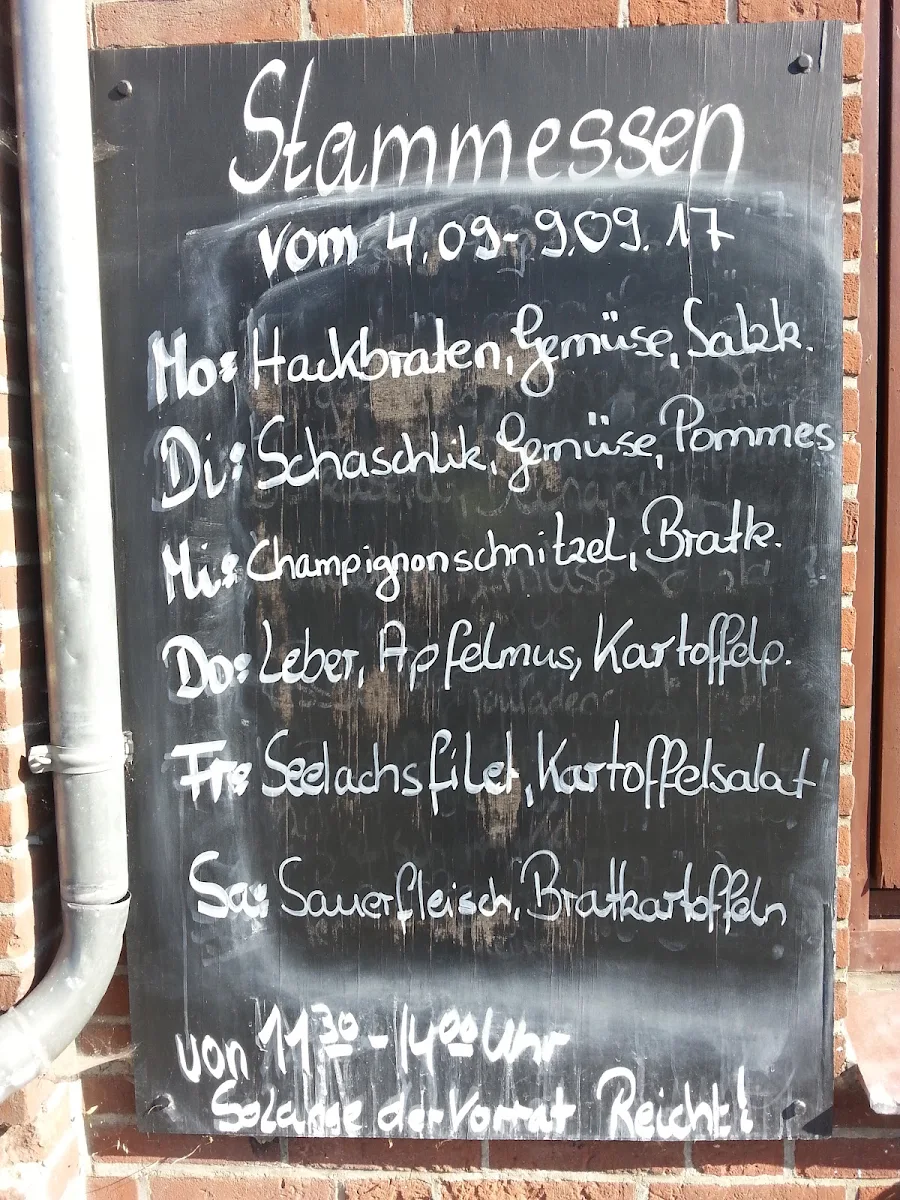 Stammessen
vom 4.09-9.09.17
Mo: Hackbraten, Gemüse, Salzk.
Di: Schaschlik, Gemüse, Pommes
Mi: Champignonschnitzel, Bratk.
Do: Leber, Apfelmus, Kartoffelp.
Fr: Seelachsfilet, Kartoffelsalat
Sa: Sauerfleisch, Bratkartoffeln
von 11 30 - 14 00 Uhr
Solange der Vorrat Reicht!